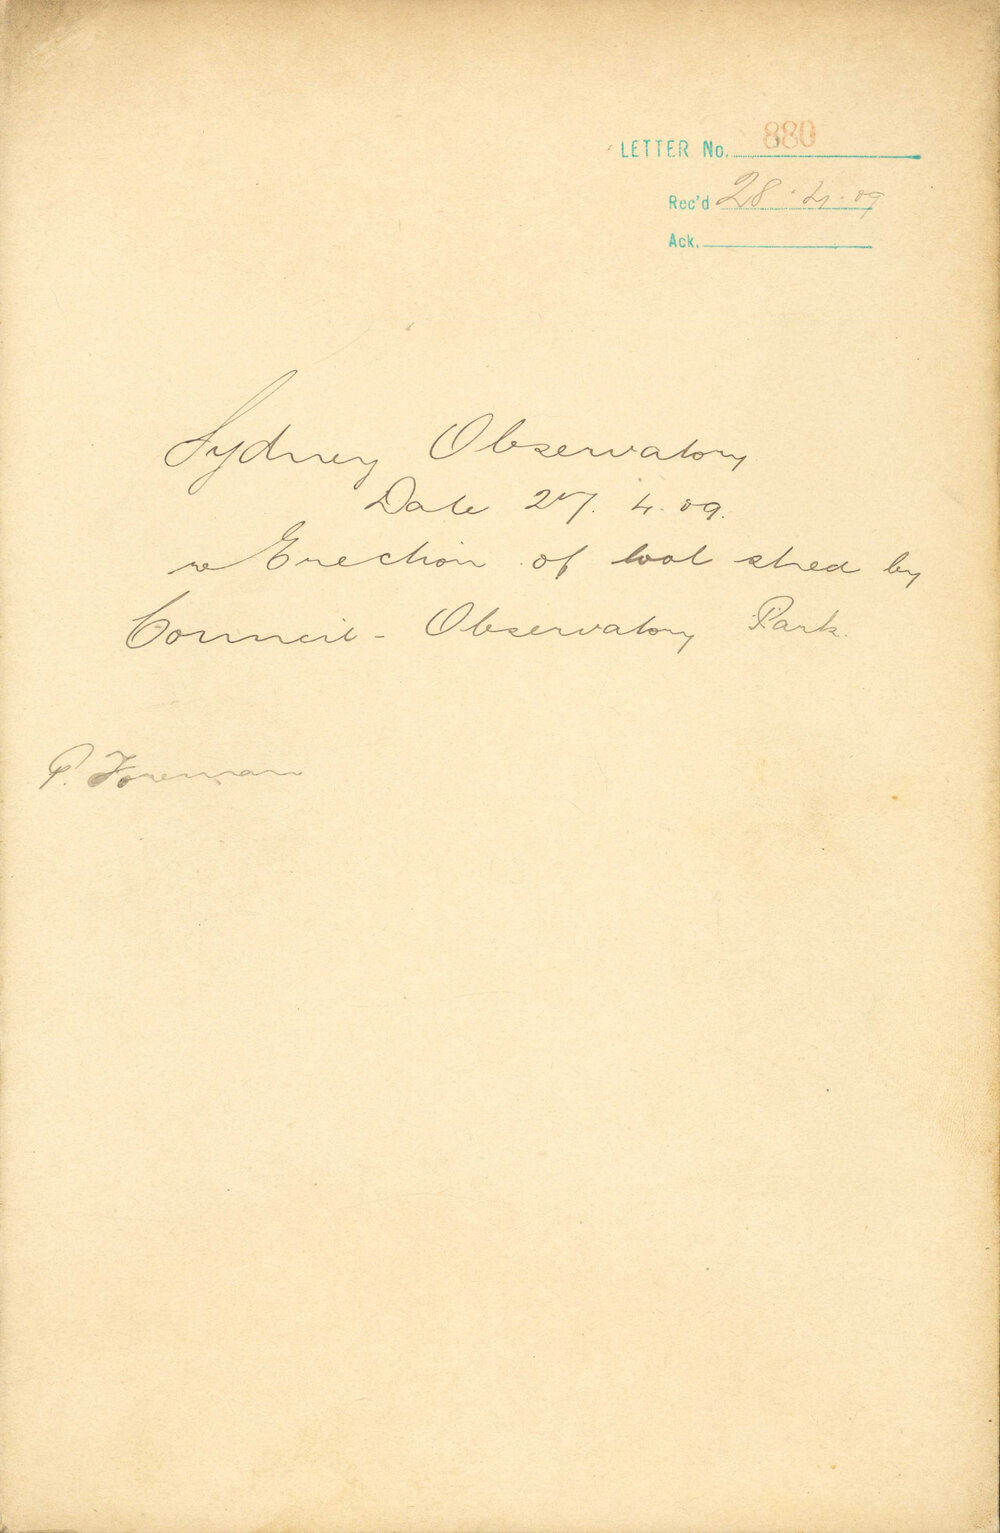 LETTER No. 880
Rec'd 28.4.09
Ack.
Sydney Observatory
Date 27.4.09.
re Erection of tool shed by
Council - Observatory Park.
P. Foreman